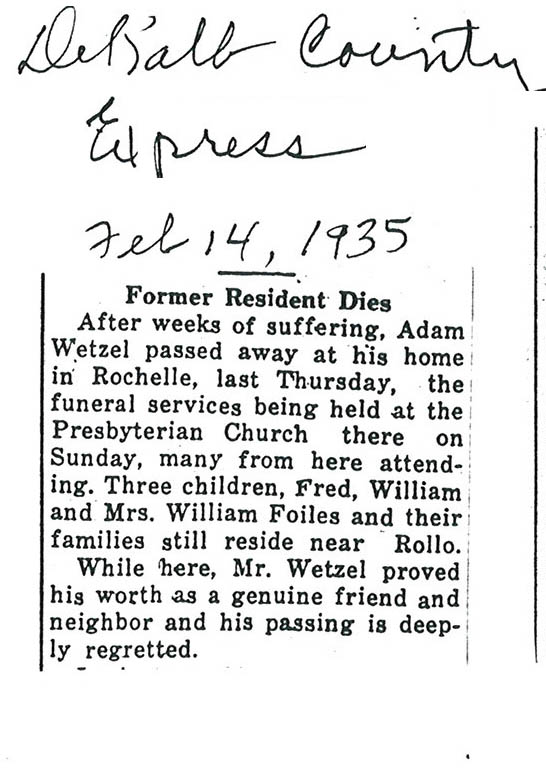 DeKalb County
Express
Feb 14, 1935
Former Resident Dies
After weeks of suffering, Adam
Wetzel passed away at his home
in Rochelle, last Thursday, the
funeral services being held at the
Presbyterian Church there on
Sunday, many from here attend-
ing. Three children, Fred, William
and Mrs. William Foiles and their
families still reside near Rollo.
While here, Mr. Wetzel proved
his worth as a genuine friend and
neighbor and his passing is deep-
ly regretted.